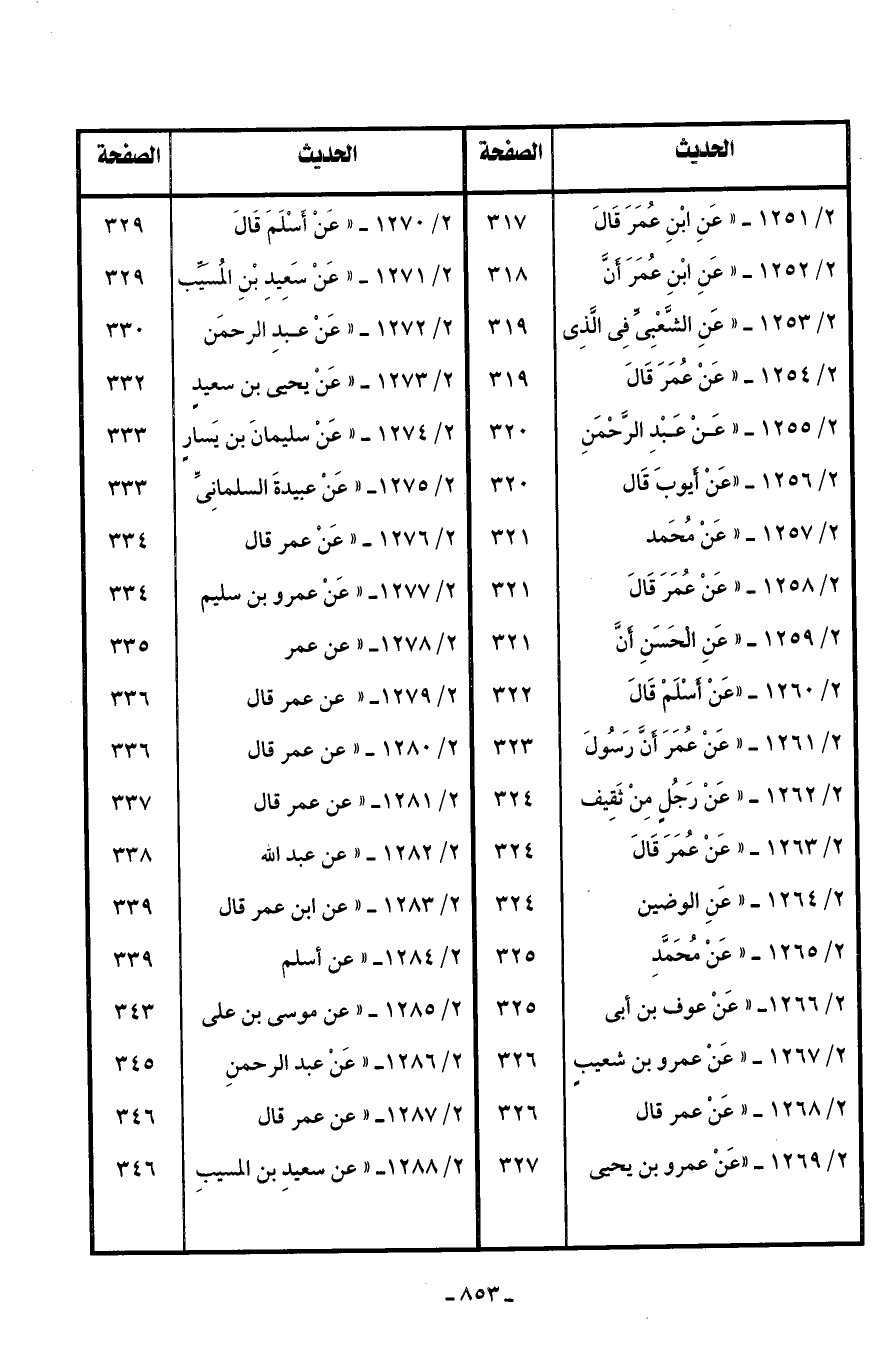 الحديث الصفحة الحديث الصفحة
٢/ ١٢٥١ ـ « عَنِ ابْنِ عُمَرَ قَالَ ٣١٧ ٢/ ١٢٧٠ ـ « عَنْ أَسْلَمَ قَالَ ٣٢٩
٢/ ١٢٥٢ ـ « عَنِ ابْنِ عُمَرَ أَنَّ ٣١٨ ٢/ ١٢٧١ ـ « عَنْ سَعِيدِ بْنِ الْمُسَيِّب ٣٢٩
٢/ ١٢٥٣ ـ « عَنِ الشَّعْبِىِّ فِى الَّذِى ٣١٩ ٢/ ١٢٧٢ ـ « عَنْ عبد الرحمَن ٣٣٠
٢/ ١٢٥٤ ـ « عَنْ عُمَرَ قَالَ ٣١٩ ٢/ ١٢٧٣ ـ « عَنْ يحيى بن سعيدٍ ٣٣٢
٢/ ١٢٥٥ ـ « عَنْ عَبْدِ الرَّحْمَنِ ٣٢٠ ٢/ ١٢٧٤ ـ « عَنْ سليمانَ بن يَسارٍ ٣٣٣
٢/ ١٢٥٦ ـ «عَنْ أَيوبَ قَال ٣٢٠ ٢/ ١٢٧٥ـ « عَنْ عبيدةَ السلمانىِّ ٣٣٣
٢/ ١٢٥٧ ـ « عَنْ مُحَمد ٣٢١ ٢/ ١٢٧٦ ـ « عَنْ عمر قال ٣٣٤
٢/ ١٢٥٨ ـ « عَنْ عُمَرَ قَالَ ٣٢١ ٢/ ١٢٧٧ـ « عَنْ عمرو بن سليم ٣٣٤
٢/ ١٢٥٩ ـ « عَنِ الْحَسَنِ أَنَّ ٣٢١ ٢/ ١٢٧٨ـ « عن عمر ٣٣٥
٢/ ١٢٦٠ ـ «عَنْ أَسْلَمْ قَالَ ٣٢٢ ٢/ ١٢٧٩ـ « عن عمر قال ٣٣٦
٢/ ١٢٦١ ـ « عَنْ عُمَرَ أَنَّ رَسُولَ ٣٢٣ ٢/ ١٢٨٠ ـ « عن عمر قال ٣٣٦
٢/ ١٢٦٢ ـ « عَنْ رَجُلٍ مِنْ ثَقِيف ٣٢٤ ٢/ ١٢٨١ـ « عن عمر قال ٣٣٧
٢/ ١٢٦٣ ـ « عَنْ عُمَرَ قَالَ ٣٢٤ ٢/ ١٢٨٢ ـ « عن عبد الله ٣٣٨
٢/ ١٢٦٤ ـ « عَنِ الوضين ٣٢٤ ٢/ ١٢٨٣ ـ « عن ابن عمر قال ٣٣٩
٢/ ١٢٦٥ ـ « عَنْ مُحَمَّدِ ٣٢٥ ٢/ ١٢٨٤ـ « عن أسلم ٣٣٩
٢/ ١٢٦٦ـ « عَنْ عوف بن أبى ٣٢٥ ٢/ ١٢٨٥ ـ « عن موسى بن على ٣٤٣
٢/ ١٢٦٧ ـ « عَنْ عمرو بن شعيبٍ ٣٢٦ ٢/ ١٢٨٦ـ « عَنْ عبد الرحمنِ ٣٤٥
٢/ ١٢٦٨ ـ « عَنْ عمر قال ٣٢٦ ٢/ ١٢٨٧ـ « عن عمر قال ٣٤٦
٢/ ١٢٦٩ ـ «عَنْ عمرو بن يحيى ٣٢٧ ٢/ ١٢٨٨ـ « عن سعيدِ بن المسيبِ ٣٤٦
ـ ٨٥٣ ـ